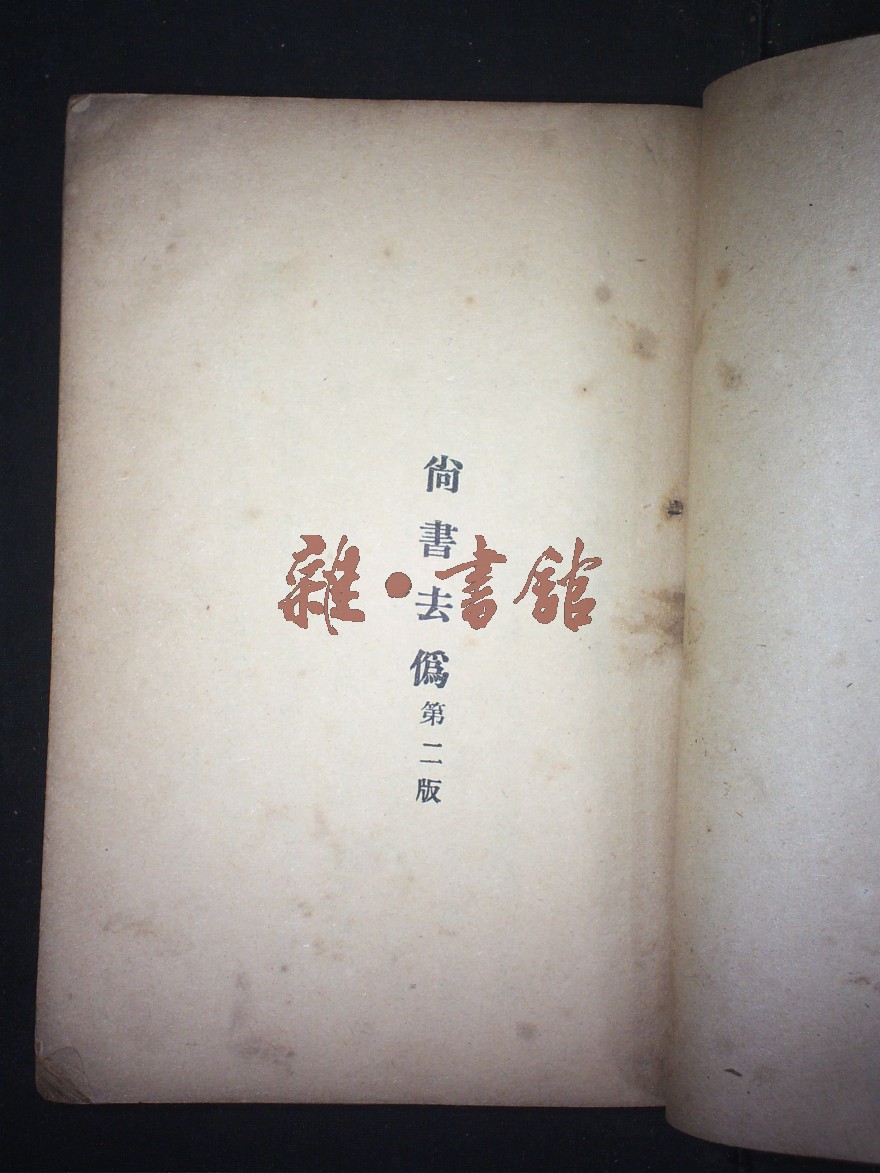 尙書去僞第二版
雜·書館